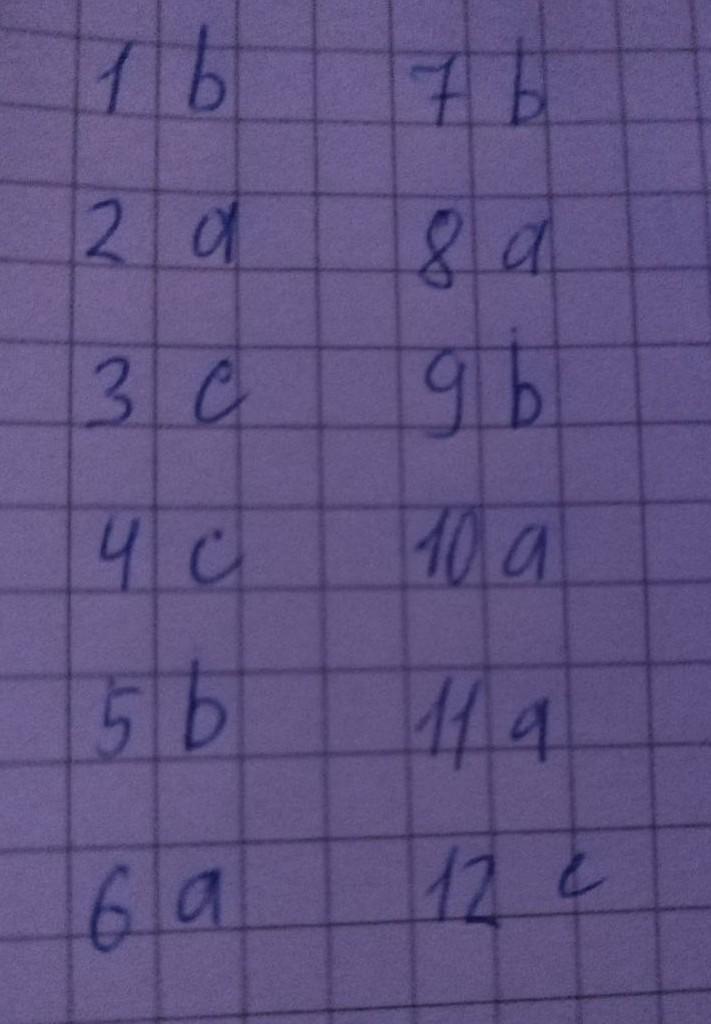 1 b
2 a
3 c
4 c
5 b
6 a
7 b
8 a
9 b
10 a
11 a
12 c